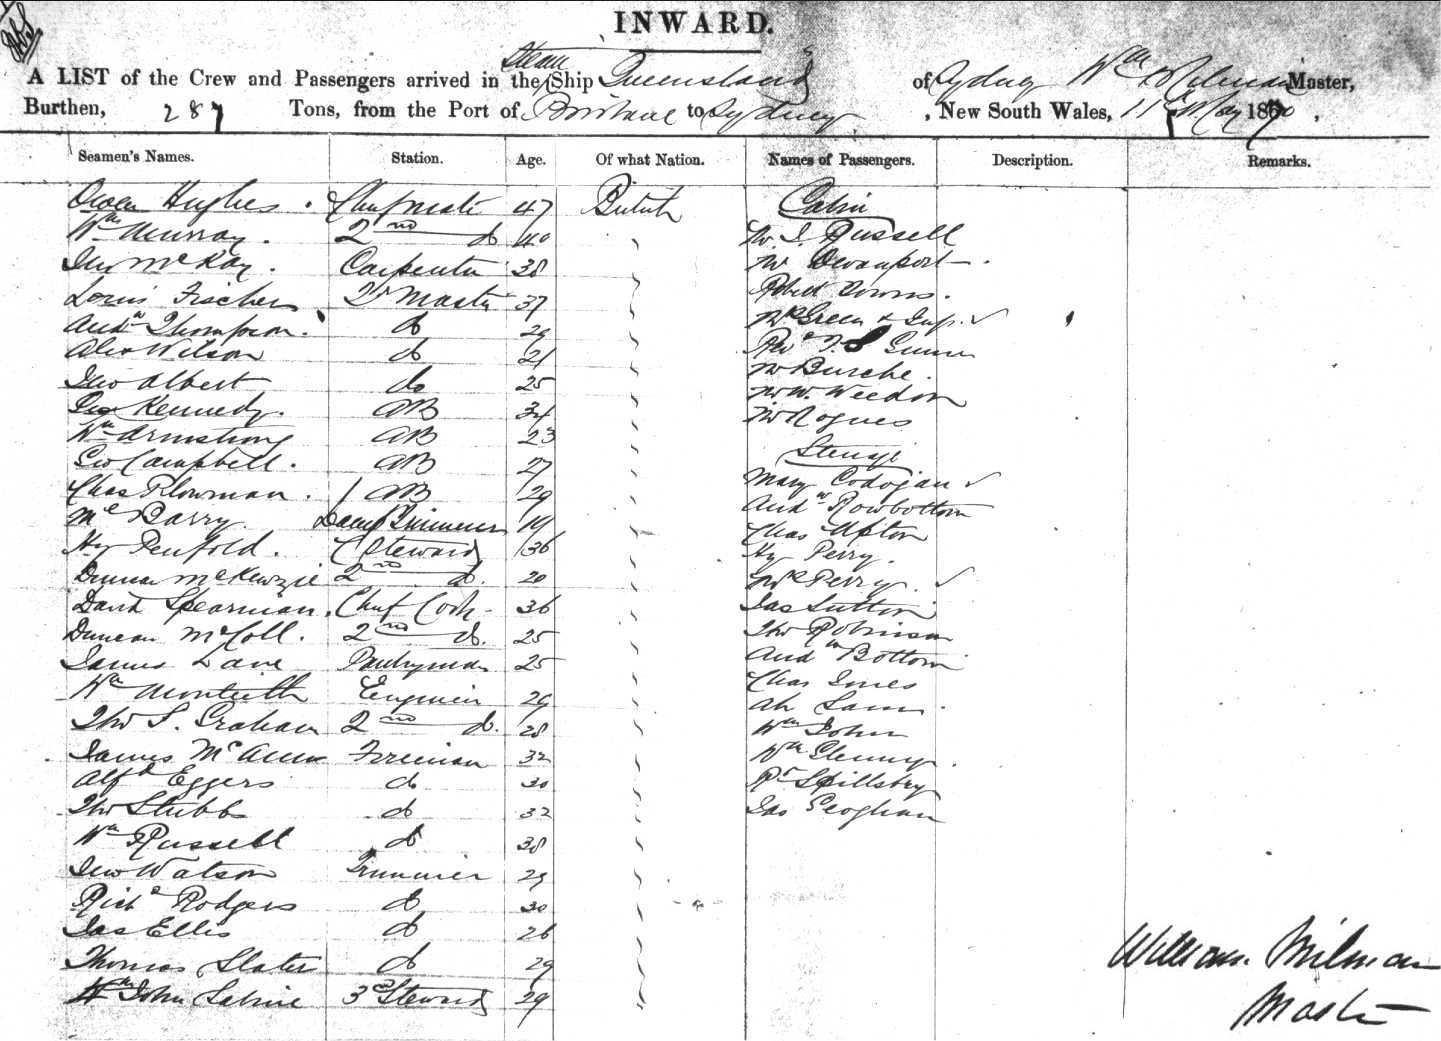 INWARD.
A LIST of the Crew and Passengers arrived in the Steam Ship Queensland of Sydney Wm Milman Master,
Burthen, 287 Tons, from the Port of Brisbane to Sydney, New South Wales, 11th May 1870,
Seamen's Names. Station. Age. Of what Nation. Names of Passengers. Description. Remarks.
Owen Hughes . Chief mate 47 British Cabin
Wm Murray . 2nd do 40 Mr. J. Russell
Jno McKay . Carpenter 38 Mr Devonport .
Louis Fischer Qr Master 37 Robert Downs .
Andw Thompson . do 29 Mrs Green & Inft. ✓
Alex Wilson do 21 Revd Gunn
Jno Albert do 25 Mr Burche .
Kennedy . AB 34 Mr W. Weedon
Wm Armstrong AB 23 Mr Rogues
Geo Campbell . AB 27 Steerage
Chas Plowman . AB 29 Mary Codogan ✓
Barry . 19 Andw Rowbottom
Hy Penfold . C Steward 36 Chas Upton
Duncan McKenzie 2nd do. 20 Hy Perry .
David Spearman . Chief Cook 36 Mrs Perry . ✓
Duncan McColl . 2nd do. 25 Jas Sutton
James Lane Pantryman 25 Tho Robinson
Wm Monteith Engineer 29 Andw Bottom
Tho S. Graham 2nd do. 28 Chas Jones
James Fireman 32 Ah Sam .
Alfd Eggers do 30 Wm John
Tho Stubbs do 32 Wm Glenny .
Wm Russell do 38 Spillsbry
Jno Watson Trimmer 29 Jas Geoghan
Richd Rodgers do 30
Jas Ellis do 26
Thomas Slater do 29
Wm John Sabine 3d Steward 29
William Milman
Master